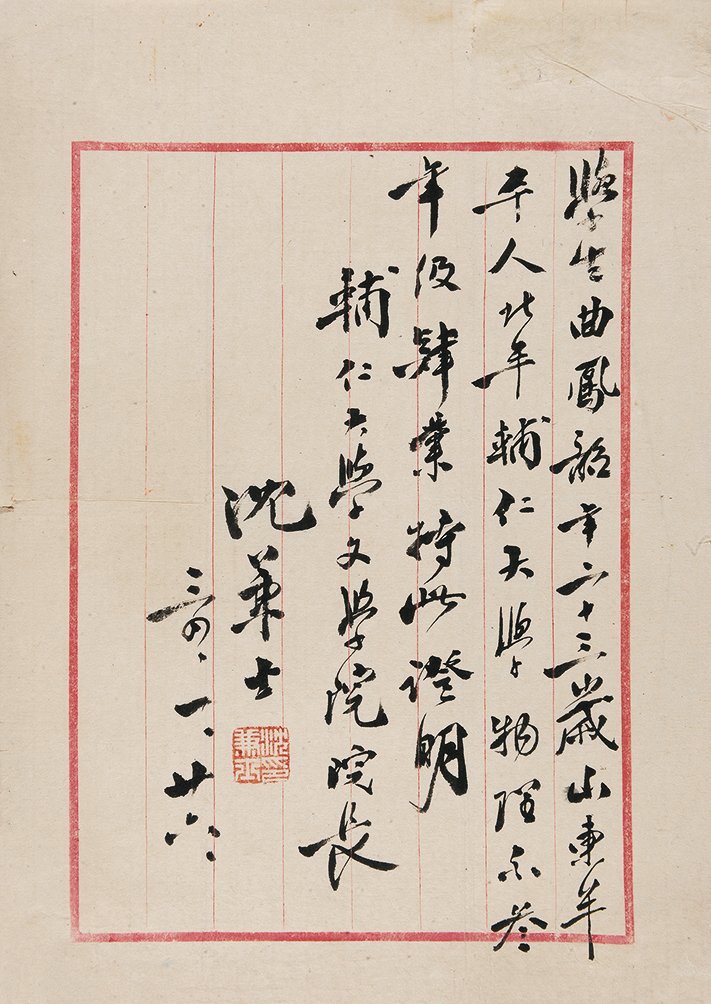 學生曲鳳韶年二十三歲山東牟
平人北平輔仁大學物理系叁
年級肄業特此證明
輔仁大學文學院院長
沈兼士
沈印兼士
三四、一、廿六、